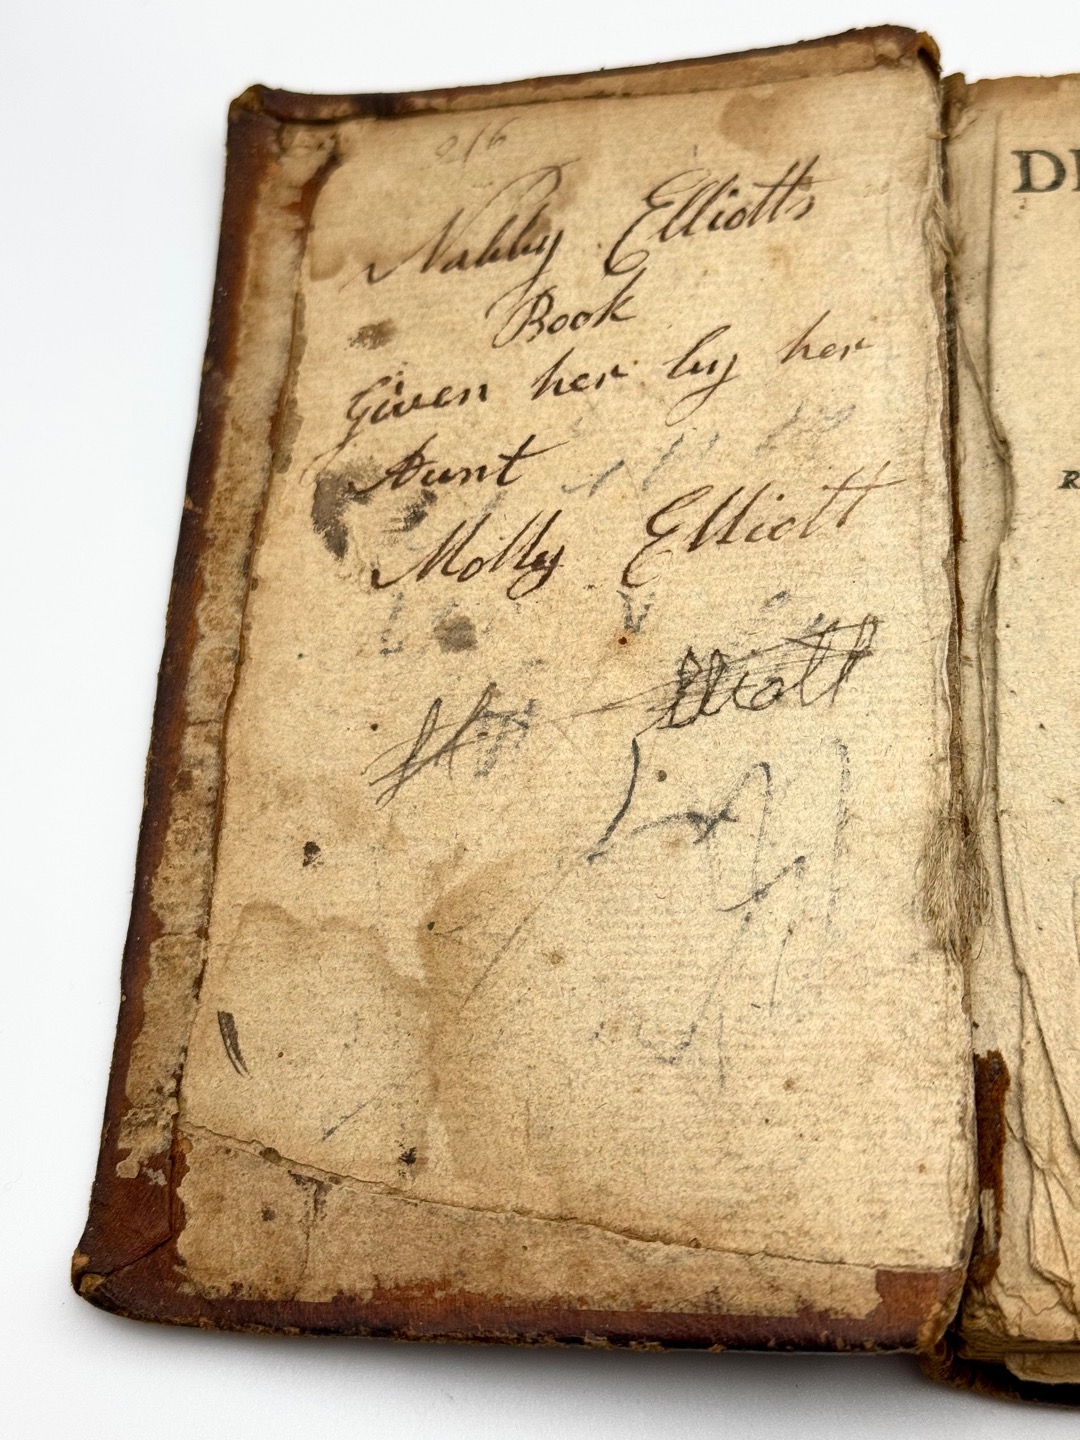 Nabby Elliotts
Book
Given her by her
Aunt
Molly Elliott
Elliott